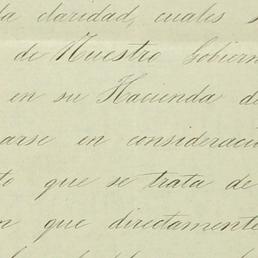 la claridad, cuales
de Nuestro Gobier
en su Hacienda de
arse en consideraci
to que se trata de
que directamente